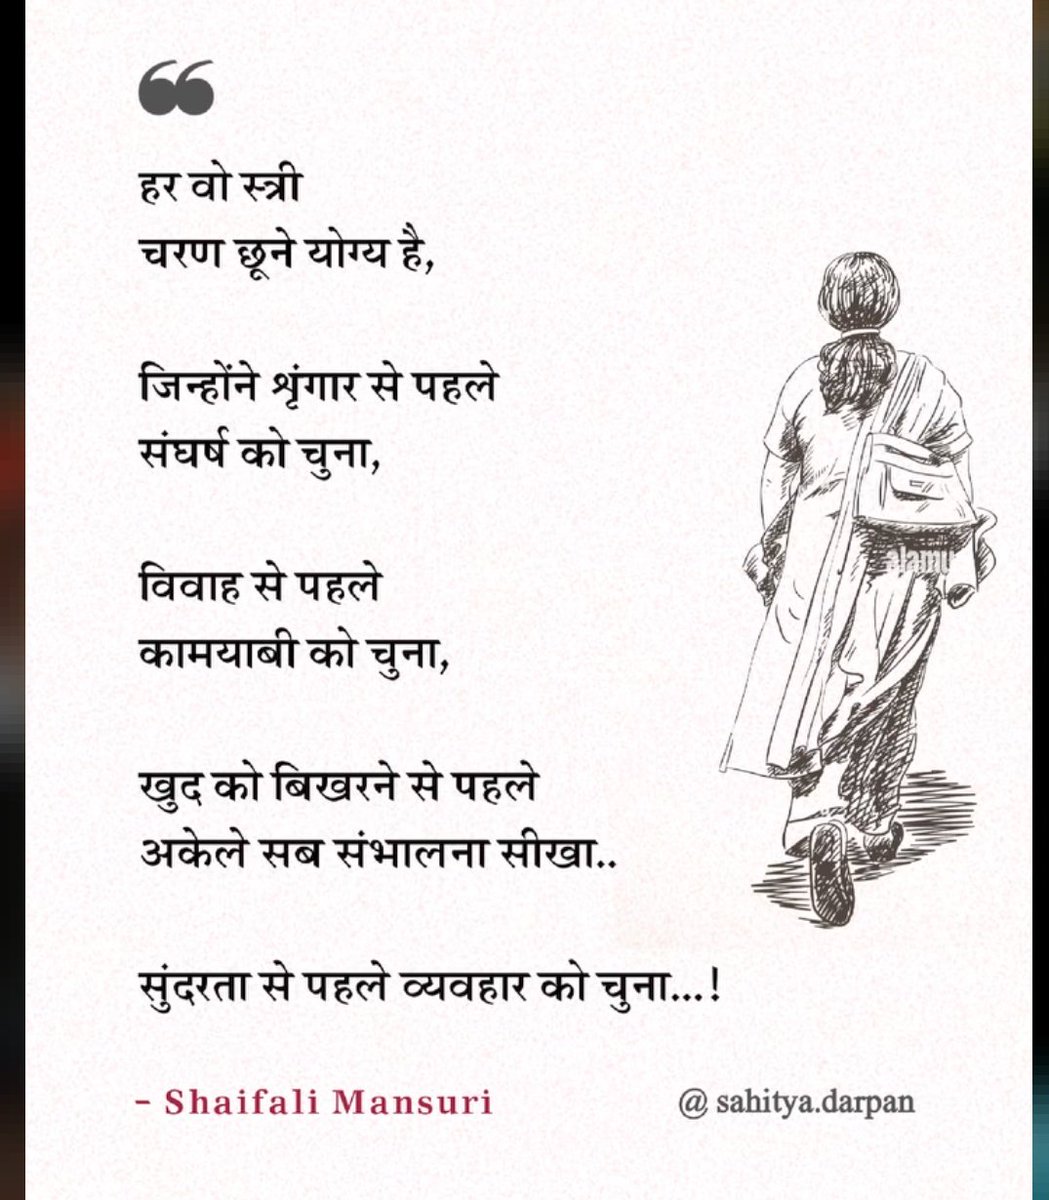 हर वो स्त्री
चरण छूने योग्य है,
जिन्होंने शृंगार से पहले
संघर्ष को चुना,
विवाह से पहले
कामयाबी को चुना,
खुद को बिखरने से पहले
अकेले सब संभालना सीखा..
सुंदरता से पहले व्यवहार को चुना...!
- Shaifali Mansuri
@ sahitya.darpan
alamy